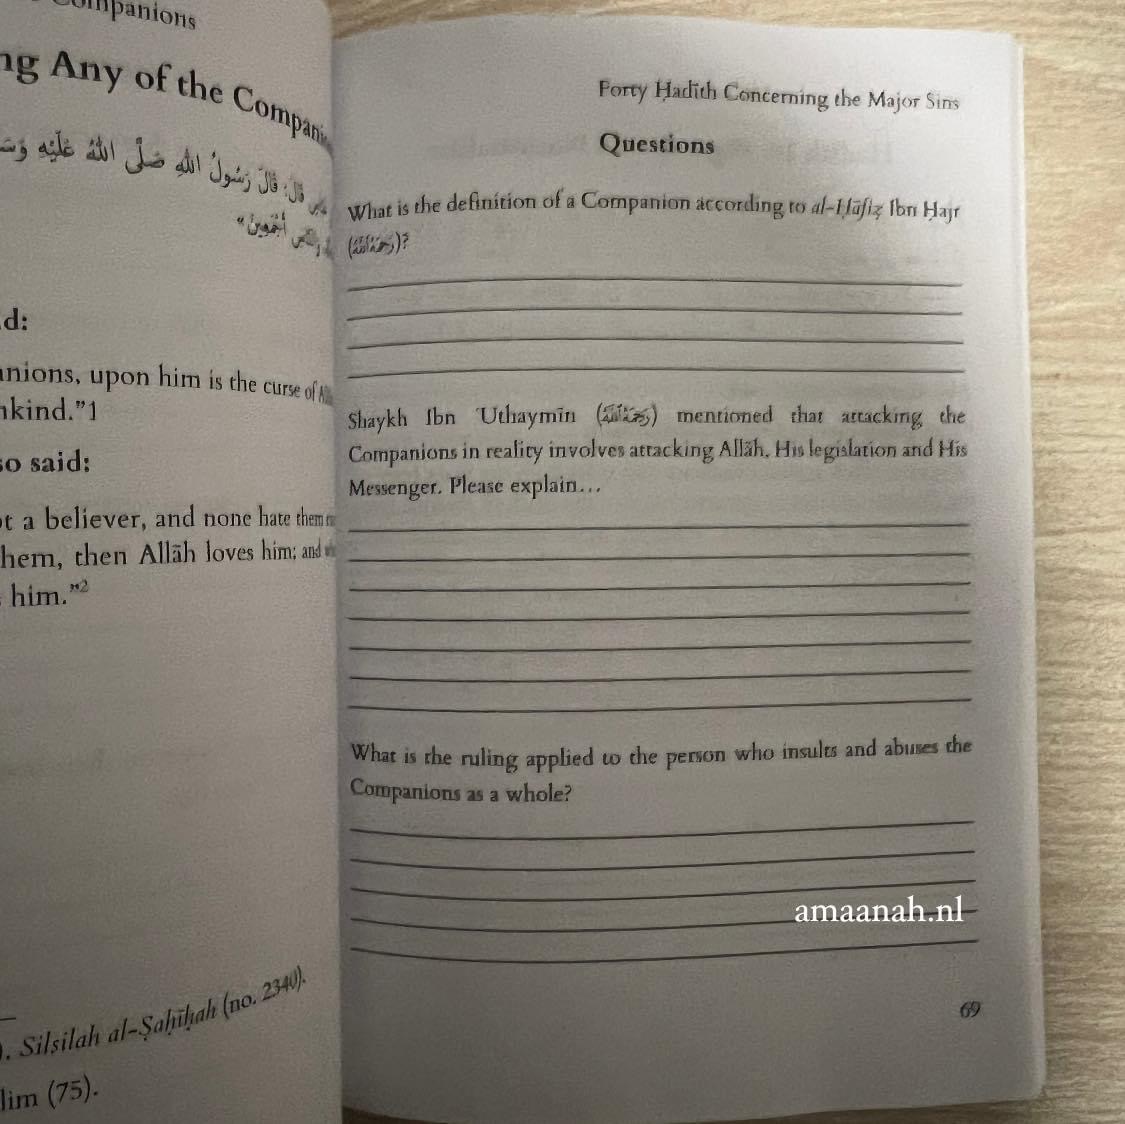 Companions
ng Any of the Compani
قَالَ: قَالَ رَسُولُ اللهِ صَلَّى اللهُ عَلَيْهِ وَسَ
أَجْمَعِينَ"
d:
nions, upon him is the curse of
nkind."1
so said:
t a believer, and none hate them
hem, then Allāh loves him; and
him."2
). Silsilah al-Ṣaḥīḥah (no. 2340).
lim (75).
Forty Ḥadīth Concerning the Major Sins
Questions
What is the definition of a Companion according to al-Ḥāfiẓ Ibn Ḥajr
(رَحِمَهُ اللهُ)?
Shaykh Ibn ʿUthaymīn (رَحِمَهُ اللهُ) mentioned that attacking the
Companions in reality involves attacking Allāh, His legislation and His
Messenger. Please explain...
What is the ruling applied to the person who insults and abuses the
Companions as a whole?
amaanah.nl
69